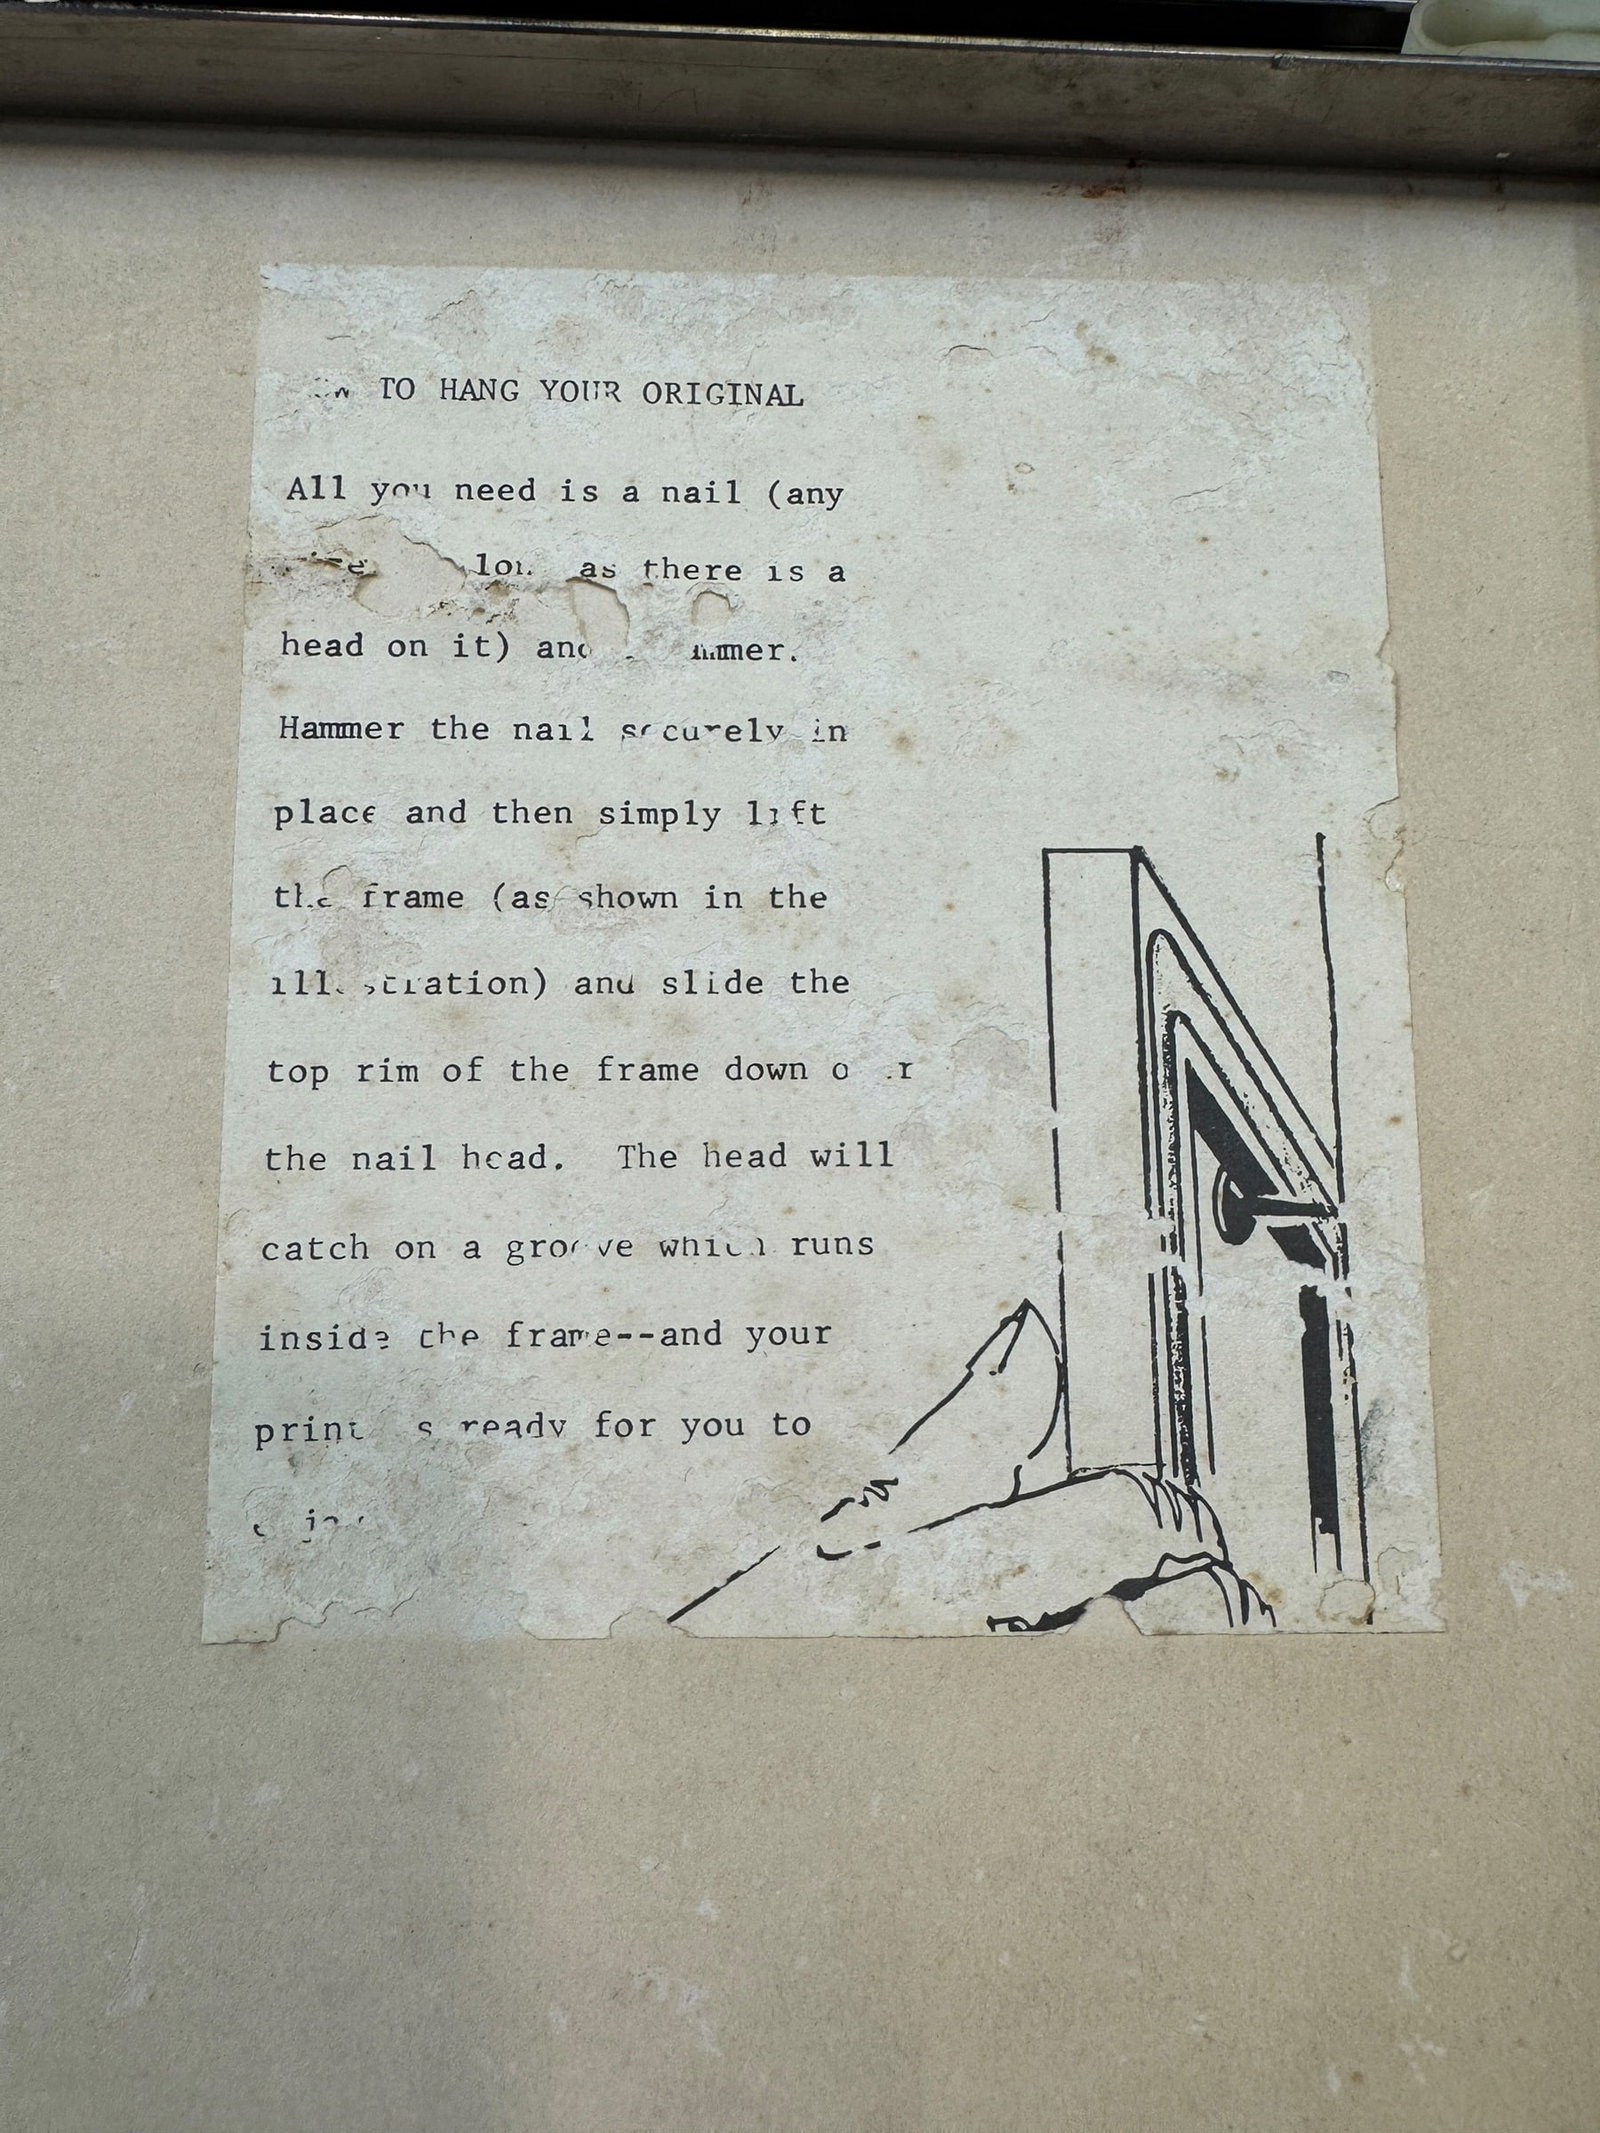 TO HANG YOUR ORIGINAL
All you need is a nail (any
as there is a
head on it) and
Hammer the nail securely in
place and then simply lift
the frame (as shown in the
illustration) and slide the
top rim of the frame down
the nail head. The head will
catch on a groove which runs
inside the frame--and your
print ready for you to